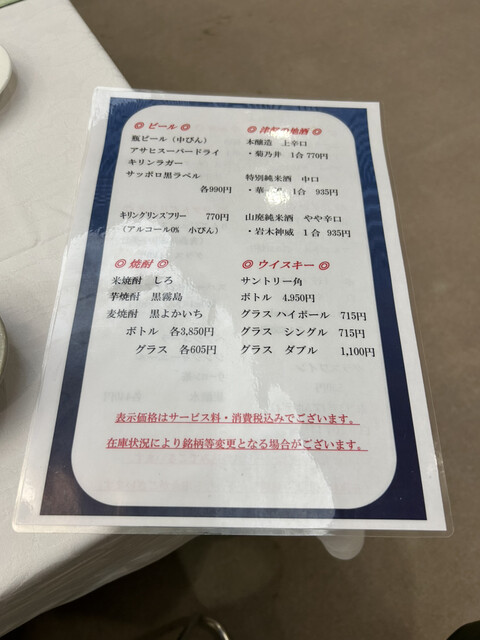 ◎ ビール ◎
瓶ビール（中びん）
アサヒスーパードライ
キリンラガー
サッポロ黒ラベル
各990円
キリングリンズフリー 770円
（アルコール0% 小びん）
◎ 焼酎 ◎
米焼酎 しろ
芋焼酎 黒霧島
麦焼酎 黒よかいち
ボトル 各3,850円
グラス 各605円
◎ 津軽の地酒 ◎
本醸造 上辛口
・菊乃井 1合 770円
特別純米酒 中口
・華 1合 935円
山廃純米酒 やや辛口
・岩木神威 1合 935円
◎ ウイスキー ◎
サントリー角
ボトル 4.950円
グラス ハイボール 715円
グラス シングル 715円
グラス ダブル 1,100円
表示価格はサービス料・消費税込みでございます。
在庫状況により銘柄等変更となる場合がございます。